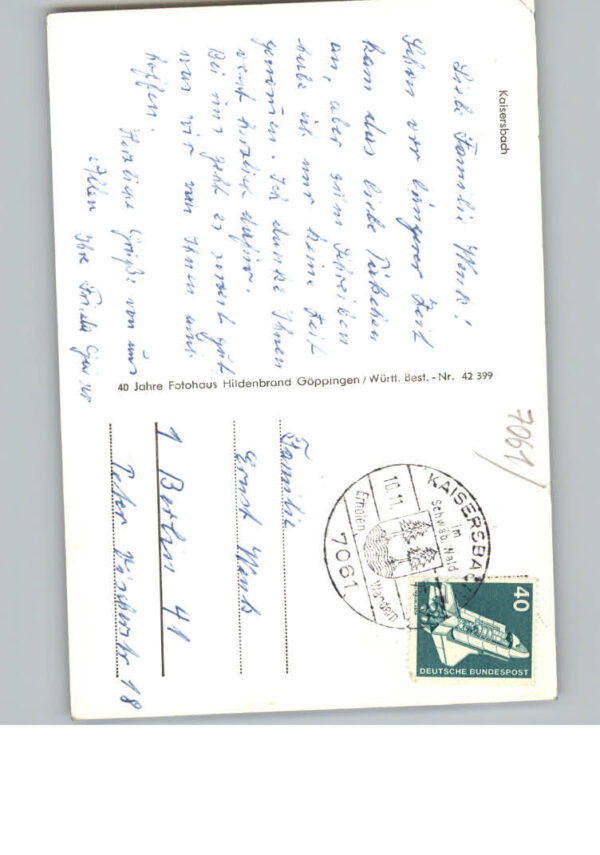 Kaisersbach
Liebe Familie Wenk!
Schon vor längerer Zeit
kam das liebe Päckchen
an, aber zum Schreiben
habe ich mir keine Zeit
genommen. Ich danke Ihnen
recht herzlich dafür.
Bei uns geht es soweit gut
was wir von Ihnen auch
hoffen.
Herzliche Grüße von uns
Allen Ihre Frida
40 Jahre Fotohaus Hildenbrand Göppingen/Württ. Best.-Nr. 42 399
7061/
KAISERSBACH
im
Schwäb. Wald
10.11.
Erholen
Wandern
7061
40
DEUTSCHE BUNDESPOST
Familie
Ernst Wenk
1 Berlin 41
18